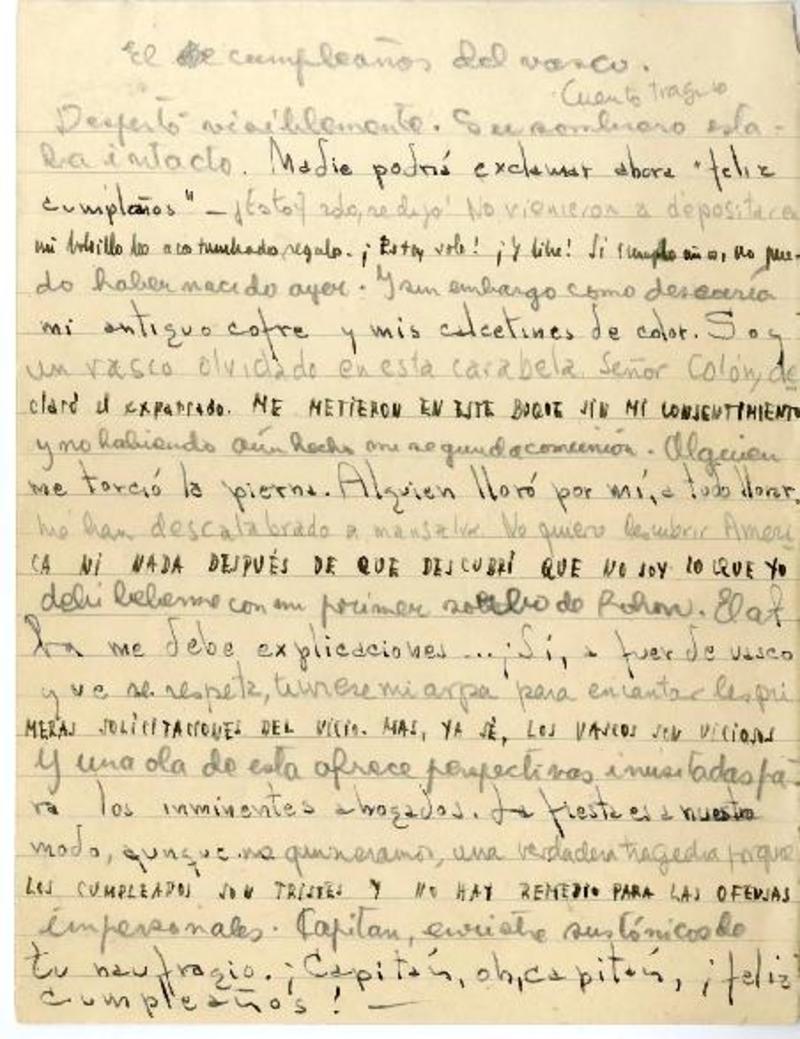 El cumpleaños del vasco.
Cuento trágico
Despertó visiblemente. Su sombrero esta-
ba intacto. Nadie podrá exclamar ahora "feliz
cumpleaños" — ¡Estoy solo, se dijo! No vienieron a depositar en
mi bolsillo los acostumbrados regalos. ¡Estoy solo! ¡Y libre! Si cumplo años, no pue-
do haber nacido ayer. Y sin embargo como desearía
mi antiguo cofre y mis calcetines de color. Soy
un vasco olvidado en esta carabela. Señor Colón, de
claró el expatriado. ME METIERON EN ESTE BUQUE SIN MI CONSENTIMIENTO
y no habiendo aún hecho mi segunda comunión. Alguien
me torció la pierna. Alguien lloró por mí, a todo llorar.
me han descalabrado a mansalva. No quiero descubrir Améri
CA NI NADA DESPUÉS DE QUE DESCUBRÍ QUE NO SOY LO QUE YO
debí beberme con mi primer de Rohon. El
me debe explicaciones... ¡Sí, a fuer de vasco
que se respeta, tuviese mi arpa para encantar las pri
MERAS SOLICITACIONES DEL VICIO. MAS, YA SÉ, LOS VASCOS SON VICIOSOS
Y una ola de esta ofrece perspectivas inusitadas pa-
ra los inminentes ahogados. La fiesta es a nuestro
modo, aunque no quisieramos, una verdadera tragedia porque
LOS CUMPLEAÑOS SON TRISTES Y NO HAY REMEDIO PARA LAS OFENSAS
impersonales. Capitan, sus tónicos de
tu naufragio. ¡Capitán, oh, capitán, ¡feliz
cumpleaños! —